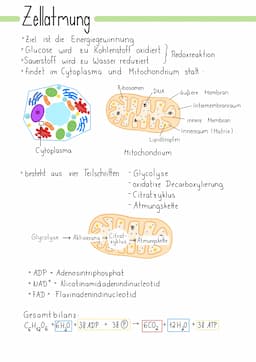 Zellatmung
• Ziel ist die Energiegewinnung
• Glucose wird zu Kohlenstoff oxidiert
• Sauerstoff wird zu Wasser reduziert
Redoxreaktion
• findet im Cytoplasma und Mitochondrium statt
Ribosomen
DNA
äußere Membran
Intermembranraum
innere Membran
Innenraum (Matrix)
Lipidtropfen
Cytoplasma
Mitochondrium
• besteht aus vier Teilschritten
- Glycolyse
- oxidative Decarboxylierung
- Citratzyklus
- Atmungskette
Glycolyse → Aktivierung → Citrat-zyklus → Atmungskette
• ADP = Adenosintriphosphat
• NAD⁺ = Nicotinamidadenindinucleotid
• FAD = Flavinadenindinucleotid
Gesamtbilanz:
C₆H₁₂O₆ + 6H₂O + 38 ADP + 38 P → 6CO₂ + 12H₂O + 38 ATP